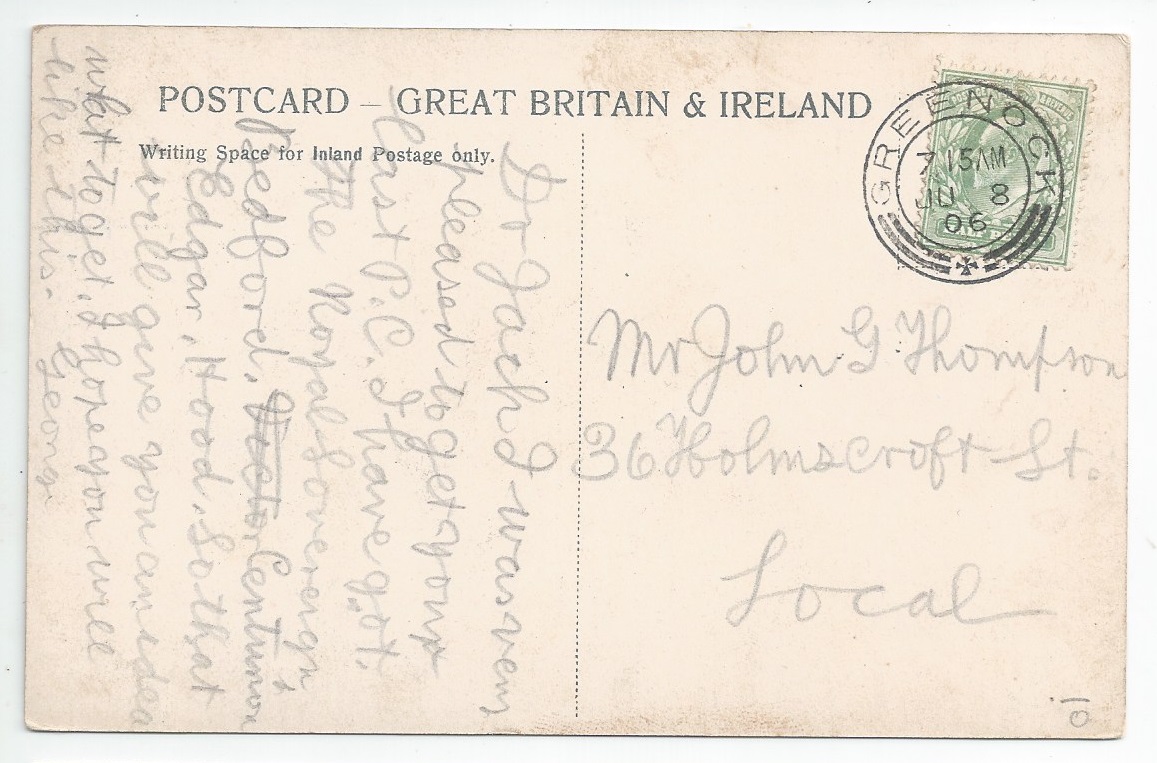 POSTCARD – GREAT BRITAIN & IRELAND
Writing Space for Inland Postage only.
GREENOCK
7 15AM
JU 8
06
Mr John G Thompson
36 Holmscroft St.
Local
Dr Jack I was very
pleased to get your
last P.C. I have got.
the Royal Sovereign
Bedford. Victor Centurion's
Edgar, Hood. So that
will give you an idea
what to get. I hope you will
like this. George
10